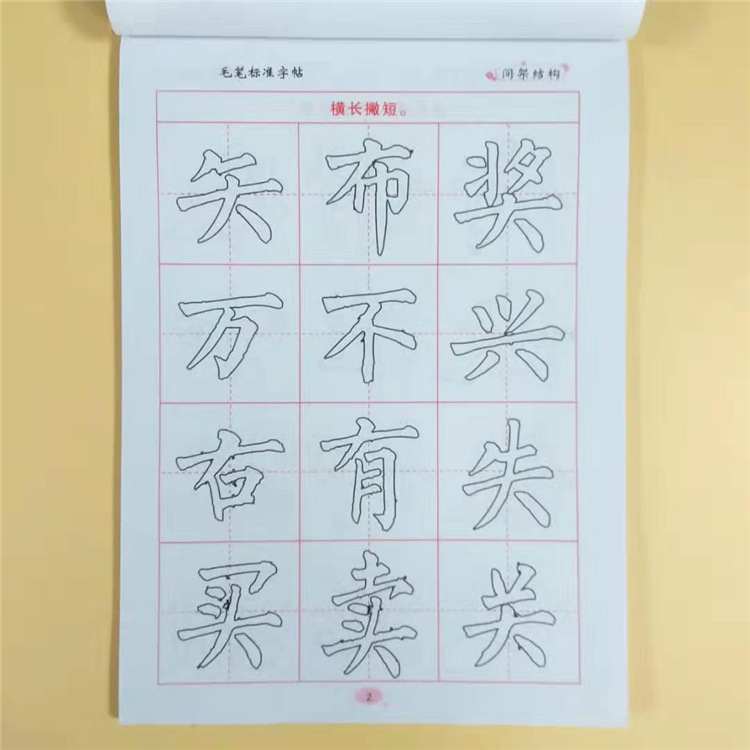 毛笔标准字帖 间架结构
横长撇短。
矢布奖
万不兴
右有失
买卖关
2